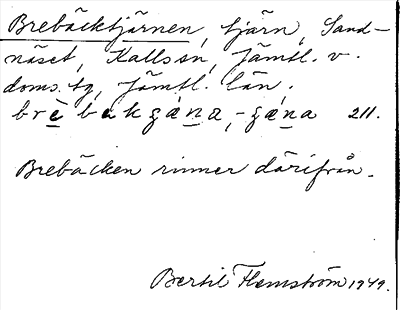 Brebäcktjärnen, tjärn, Sand-
näset, Kalls sn, Jämtl. v.
doms. tg, Jämtl. län.
brè bakgæ̀na, -gǽna 211.
Brebäcken rinner därifrån.
Bertil Flemström 1949.